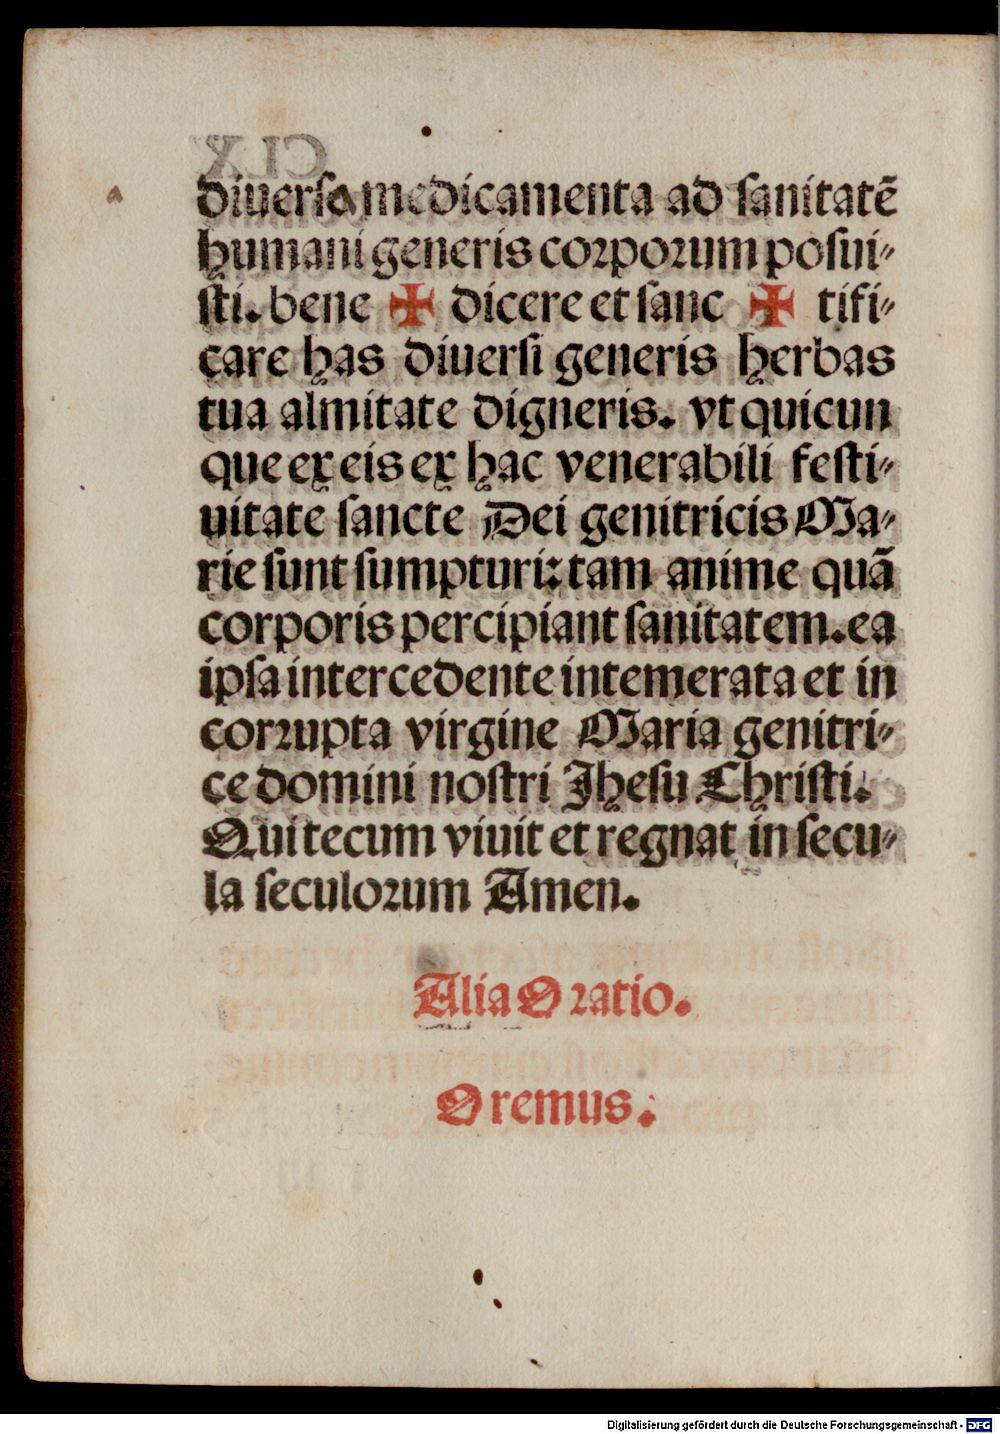 diuersa medicamenta ad sanitatē
humani generis corporum posui-
sti. bene ✠ dicere et sanc ✠ tifi-
care has diuersi generis herbas
tua almitate digneris. vt quicun
que ex eis ex hac venerabili festi-
uitate sancte Dei genitricis Ma-
rie sunt sumpturi: tam anime quā
corporis percipiant sanitatem. ea
ipsa intercedente intemerata et in
corrupta virgine Maria genitri-
ce domini nostri Jhesu Christi.
Qui tecum viuit et regnat in secu-
la seculorum Amen.
Alia Oratio.
Oremus.
Digitalisierung gefördert durch die Deutsche Forschungsgemeinschaft - DFG